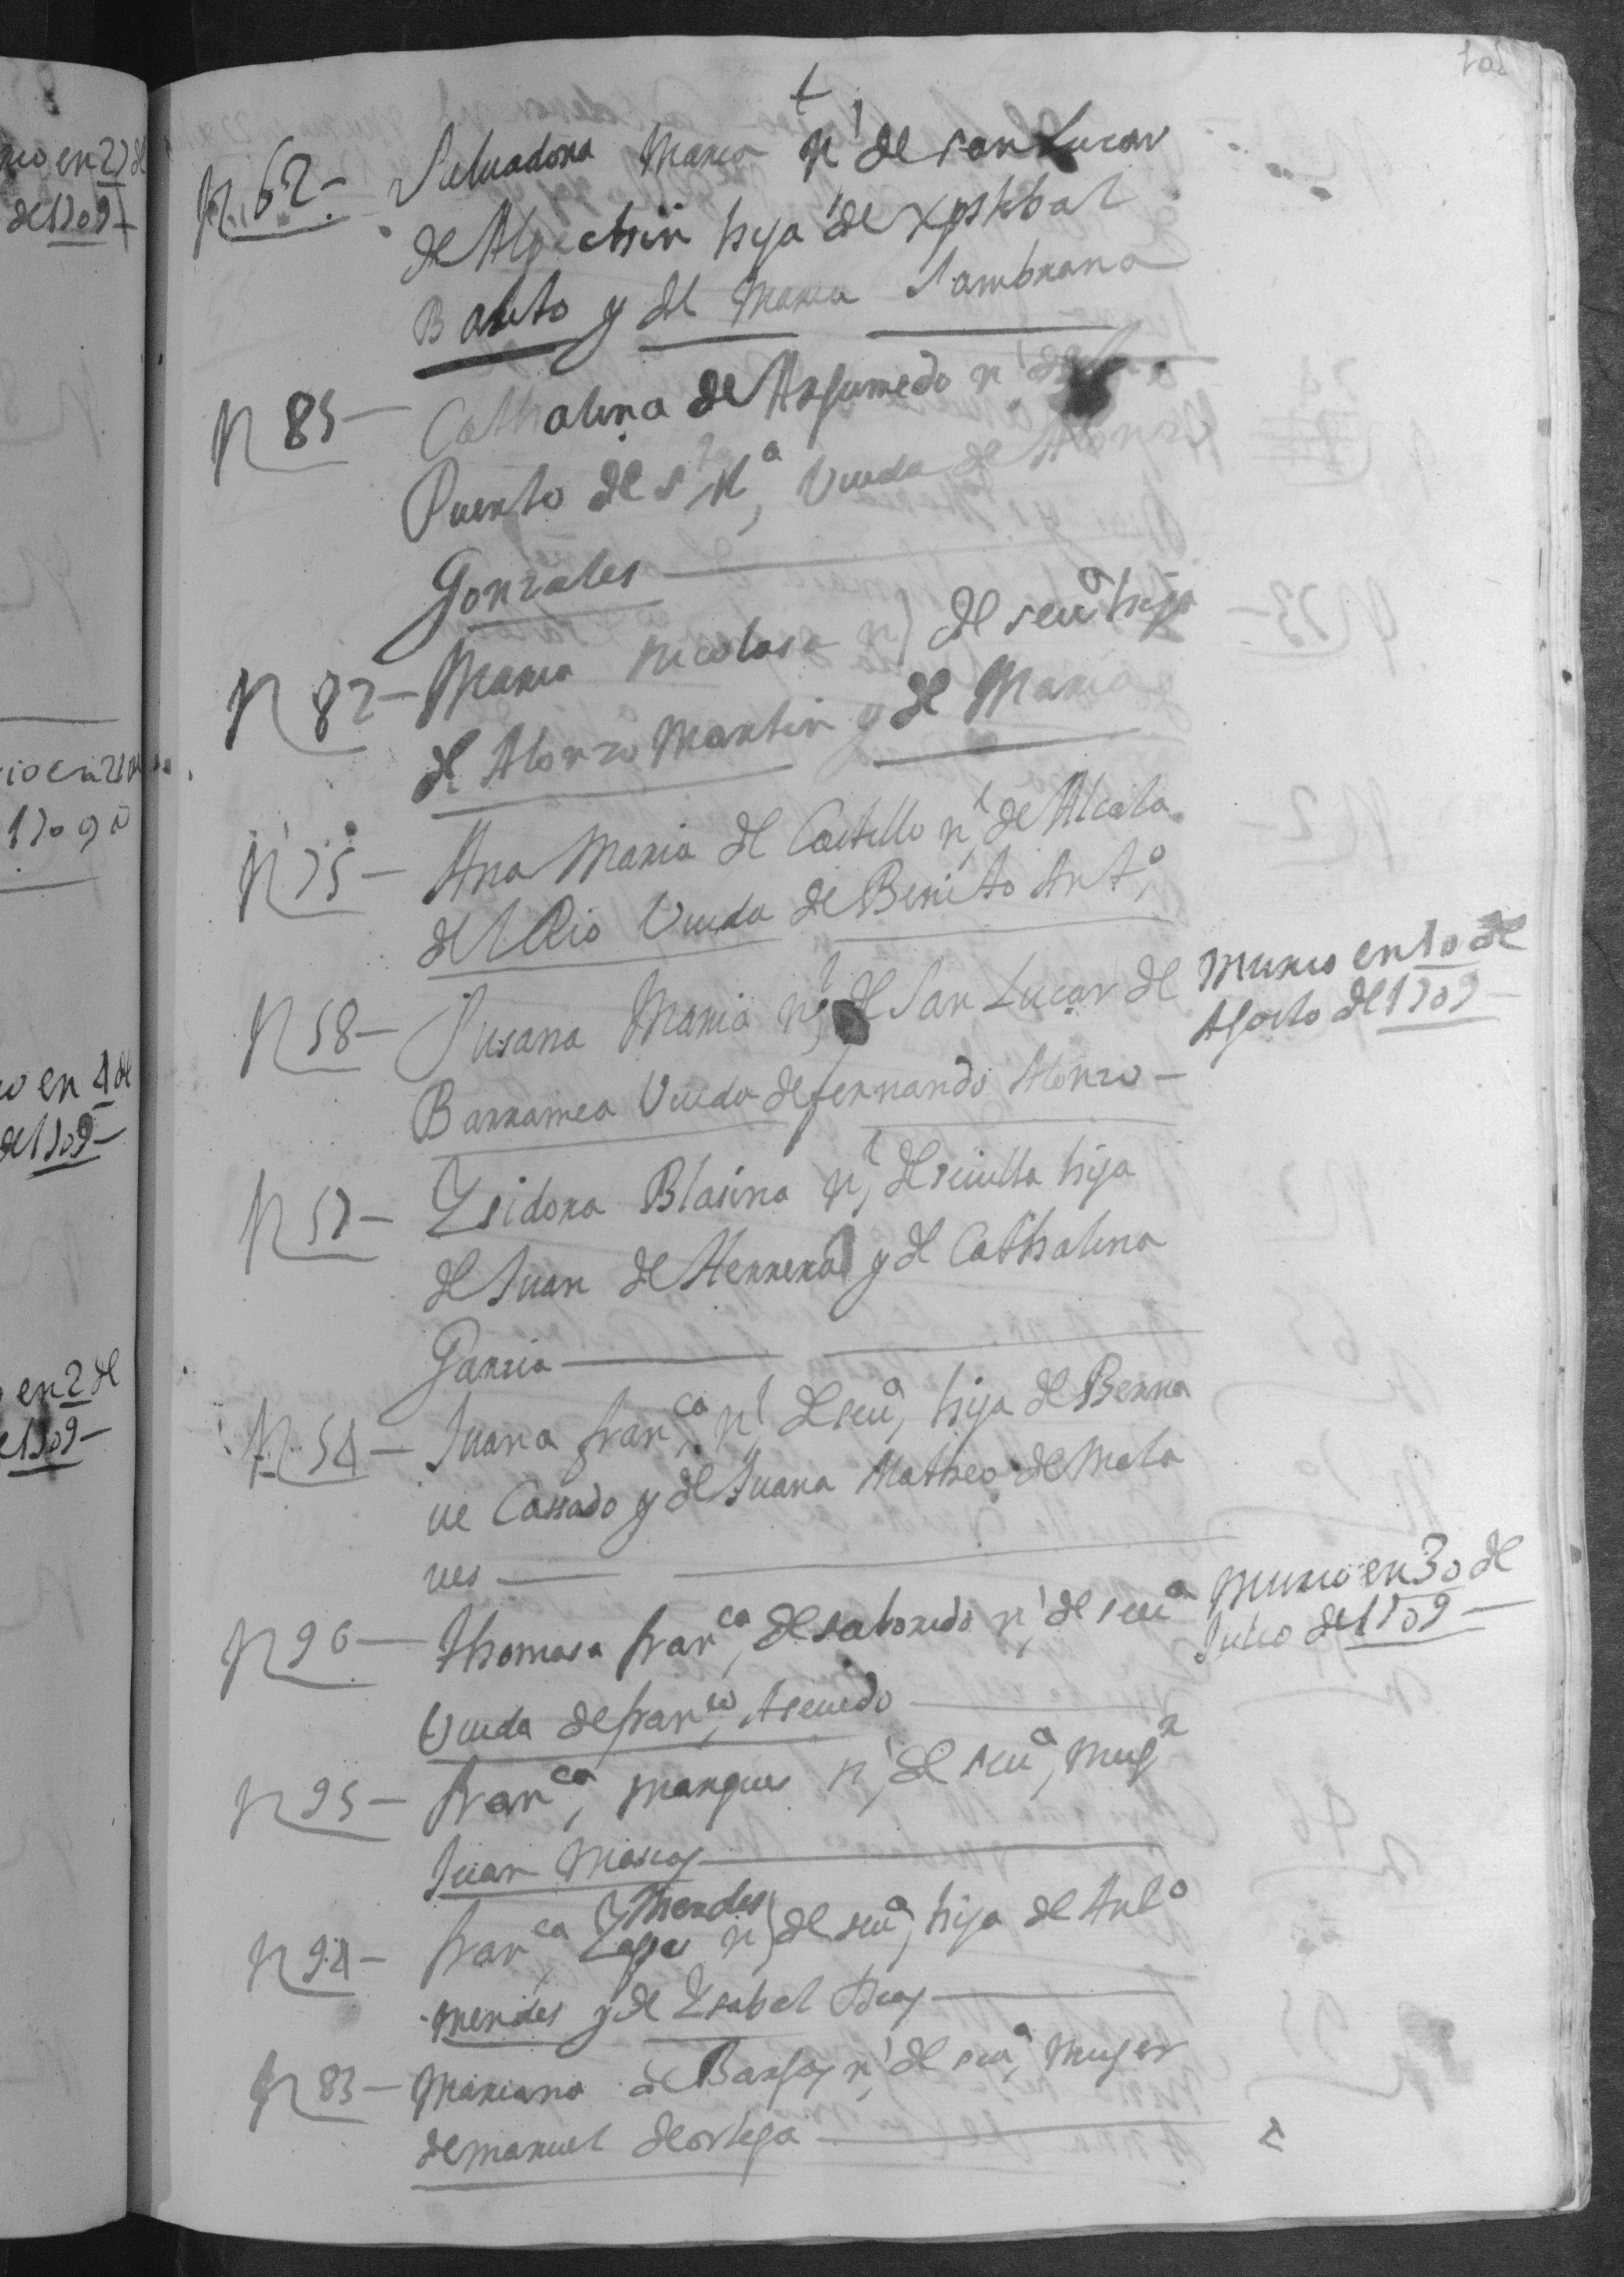 101
N 62 - Saluadora Maria nl de san Lucar
de Alpechin hija de xpstobal
Bauto y de Maria Sambrana
N 85 - Cathalina de Argumedo nl del
Puerto de Sta Ma, Viuda de Alonzo
Gonzales
N 82 - Maria nicolasa nl de seua hija
de Alonzo Martin y de Maria
N 75 - Ana Maria del Castillo nl de Alcala
del Rio Viuda de Benito Anto,
N 58 - Susana Maria nl de San Lucar de
Barramea Viuda de fernando Alonzo -
Murio en 10 de
Agosto de 1709 -
N 57 - Ysidora Blasina nl, de seuilla hija
de Juan de Herrera y de Cathalina
Garcia
N 54 - Juana franca, nl de seua, hija de Berna
ue Cassado y de Juana Matheo de Mata
ues
N 96 - Thomasa franca, de saborido nl de seua
Viuda de franco, Aseuedo
Murio en 30 de
Julio de 1709 -
N 95 - franca, marques nl de seua, mugr
Juan Masias
N 94 - franca, Mendes nl de seua, hija de Anto
mendes y de Ysabel Dias
N 83 - Mariana de Bargas nl de seua, Muger
de manuel de ortega
rio en 27 de
de 1709
io en 21 de
1709
o en 4 de
de 1709 -
en 2 de
1709 -